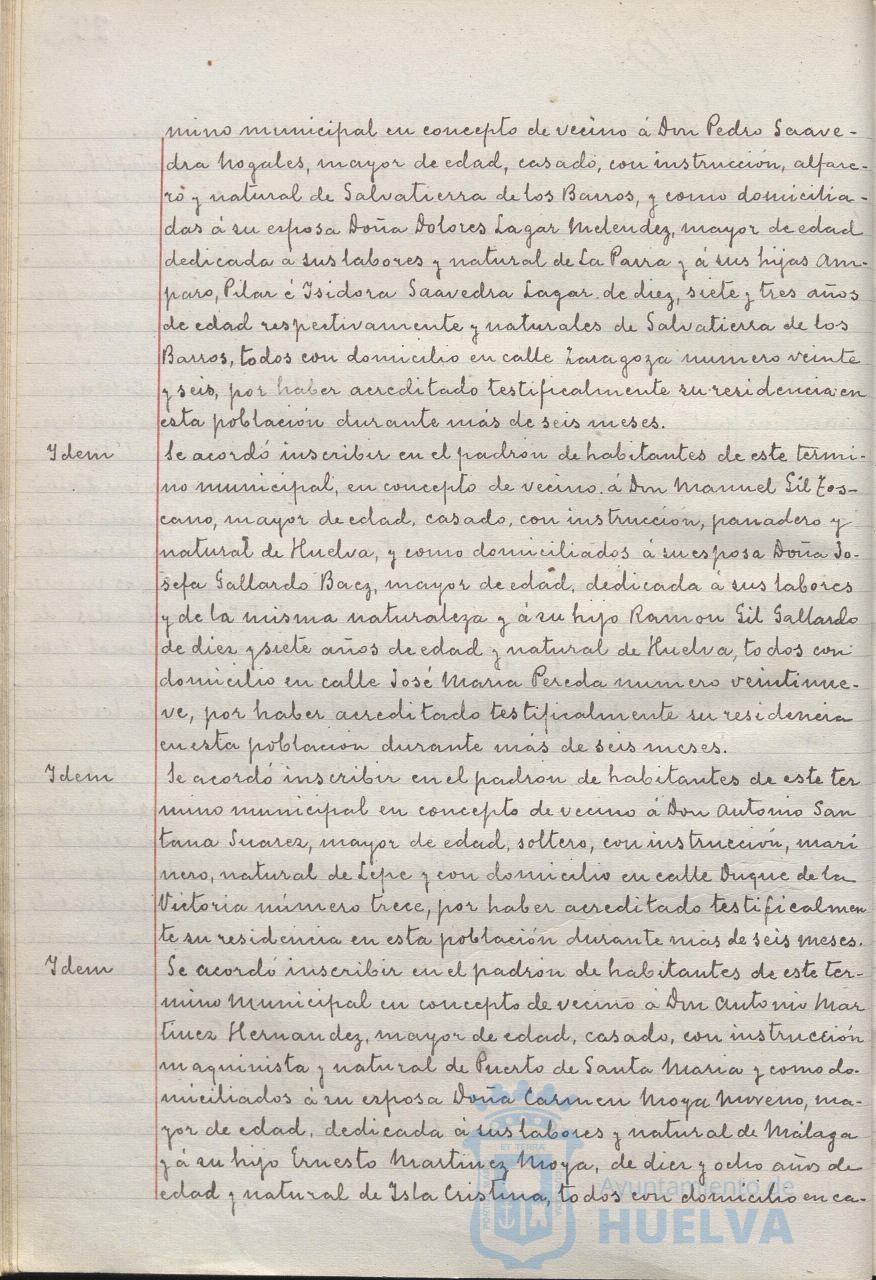 mino municipal en concepto de vecino á Don Pedro Saave-
dra Nogales, mayor de edad, casado, con instrucción, alfare-
ro y natural de Salvatierra de los Barros, y como domicilia-
das á su esposa Doña Dolores Lagar Melendez, mayor de edad
dedicada á sus labores y natural de La Parra y á sus hijas Am-
paro, Pilar é Isidora Saavedra Lagar de diez, siete y tres años
de edad respectivamente y naturales de Salvatierra de los
Barros, todos con domicilio en calle Zaragoza numero veinte
y seis, por haber acreditado testificalmente su residencia en
esta población durante más de seis meses.
Idem Se acordó inscribir en el padron de habitantes de este termi-
no municipal, en concepto de vecino á Don Manuel Gil Tos-
cano, mayor de edad, casado, con instruccion, panadero y
natural de Huelva, y como domiciliados á su esposa Doña Jo-
sefa Gallardo Baez, mayor de edad, dedicada á sus labores
y de la misma naturaleza y á su hijo Ramon Gil Gallardo
de diez y siete años de edad y natural de Huelva, todos con
domicilio en calle José Maria Pereda numero veintinue-
ve, por haber acreditado testificalmente su residencia
en esta poblacion durante más de seis meses.
Idem Se acordó inscribir en el padron de habitantes de este ter
mino municipal en concepto de vecino á Don Antonio San
tana Suarez, mayor de edad, soltero, con instrucción, mari
nero, natural de Lepe y con domicilio en calle Duque de la
Victoria número trece, por haber acreditado testificalmen
te su residencia en esta población durante mas de seis meses.
Idem Se acordó inscribir en el padron de habitantes de este ter-
mino municipal en concepto de vecino á Don Antonio Mar
tinez Hernandez, mayor de edad, casado, con instrucción
maquinista y natural de Puerto de Santa Maria y como do-
miciliados á su esposa Doña Carmen Moya Moreno, ma-
yor de edad, dedicada á sus labores y natural de Málaga
y á su hijo Ernesto Martinez Moya, de diez y ocho años de
edad y natural de Isla Cristina, todos con domicilio en ca-
Ayuntamiento de
HUELVA